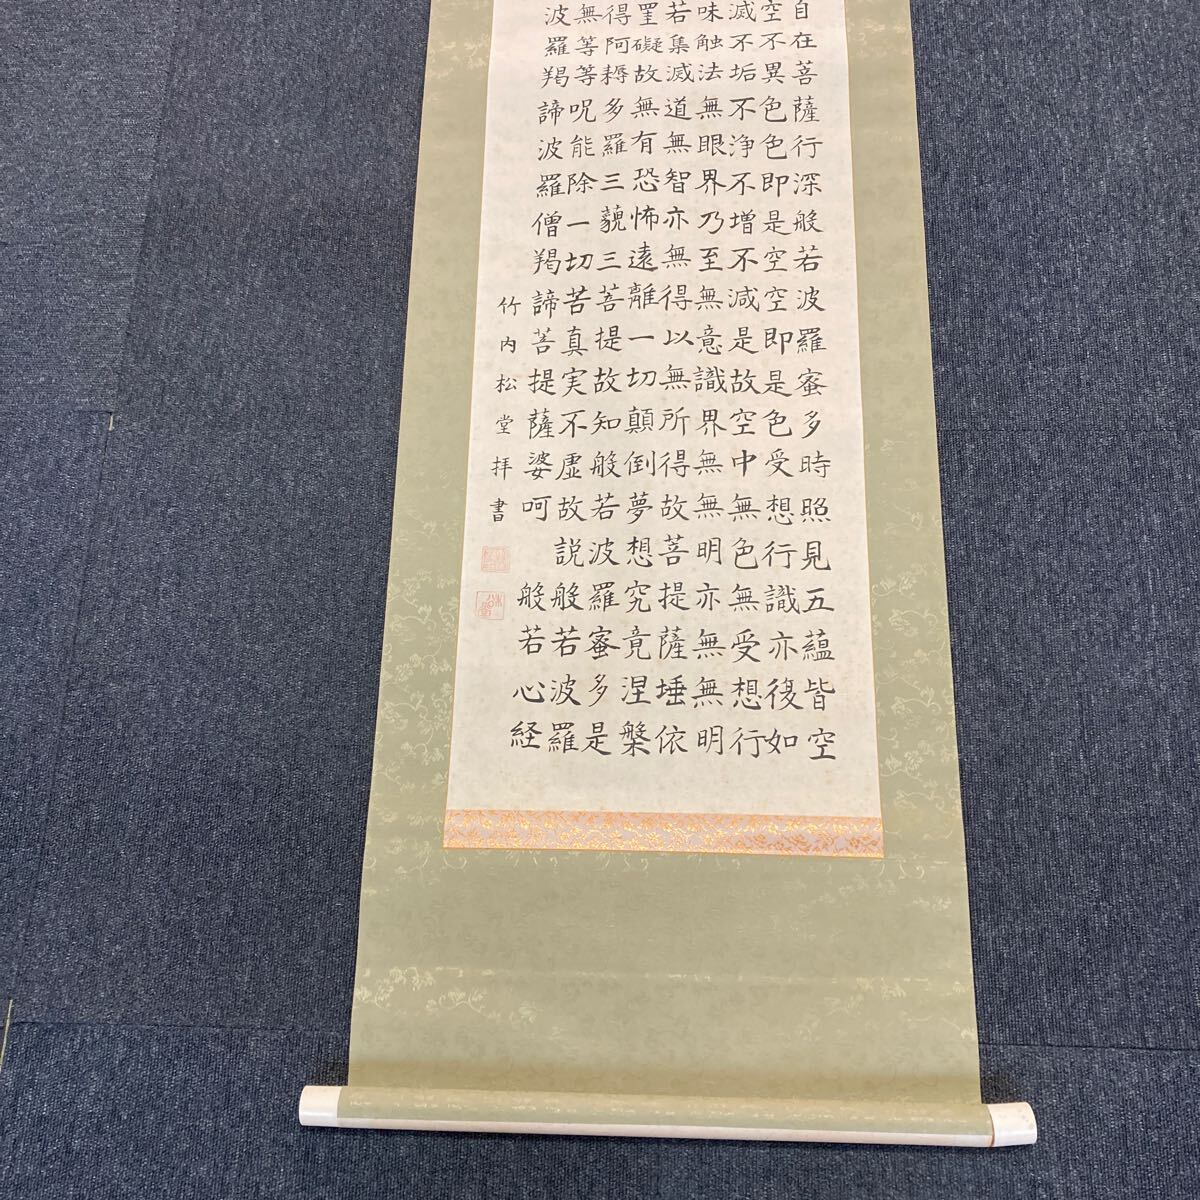 自在菩薩行深般若波羅蜜多時照見五蘊皆空
空不異色色即是空空即是色受想行識亦復如
滅不垢不浄不増不減是故空中無色無受想行
味触法無眼界乃至無意識界無無明亦無無明
苦集滅道無智亦無得以無所得故菩提薩埵依
罣礙故無有恐怖遠離一切顛倒夢想究竟涅槃
得阿耨多羅三藐三菩提故知般若波羅蜜多是
無等等呪能除一切苦真実不虚故説般若波羅
波羅羯諦波羅僧羯諦菩提薩婆呵般若心経
竹内松堂拝書